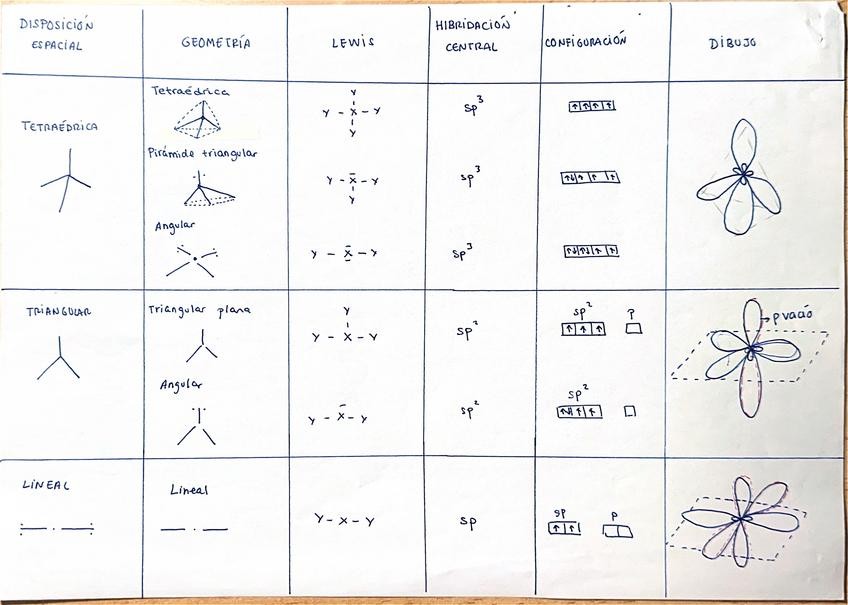 DISPOSICIÓN
ESPACIAL
GEOMETRÍA
LEWIS
HIBRIDACIÓN
CENTRAL
CONFIGURACIÓN
DIBUJO
TETRAÉDRICA
Tetraédrica
Y
Y - X - Y
Y
sp³
Pirámide triangular
Y - X - Y
Y
sp³
Angular
Y - X - Y
sp³
TRIANGULAR
Triangular plana
Y
Y - X - Y
sp²
sp² p
p vacío
Angular
Y - X - Y
sp²
sp²
LINEAL
Lineal
Y - X - Y
sp
sp p